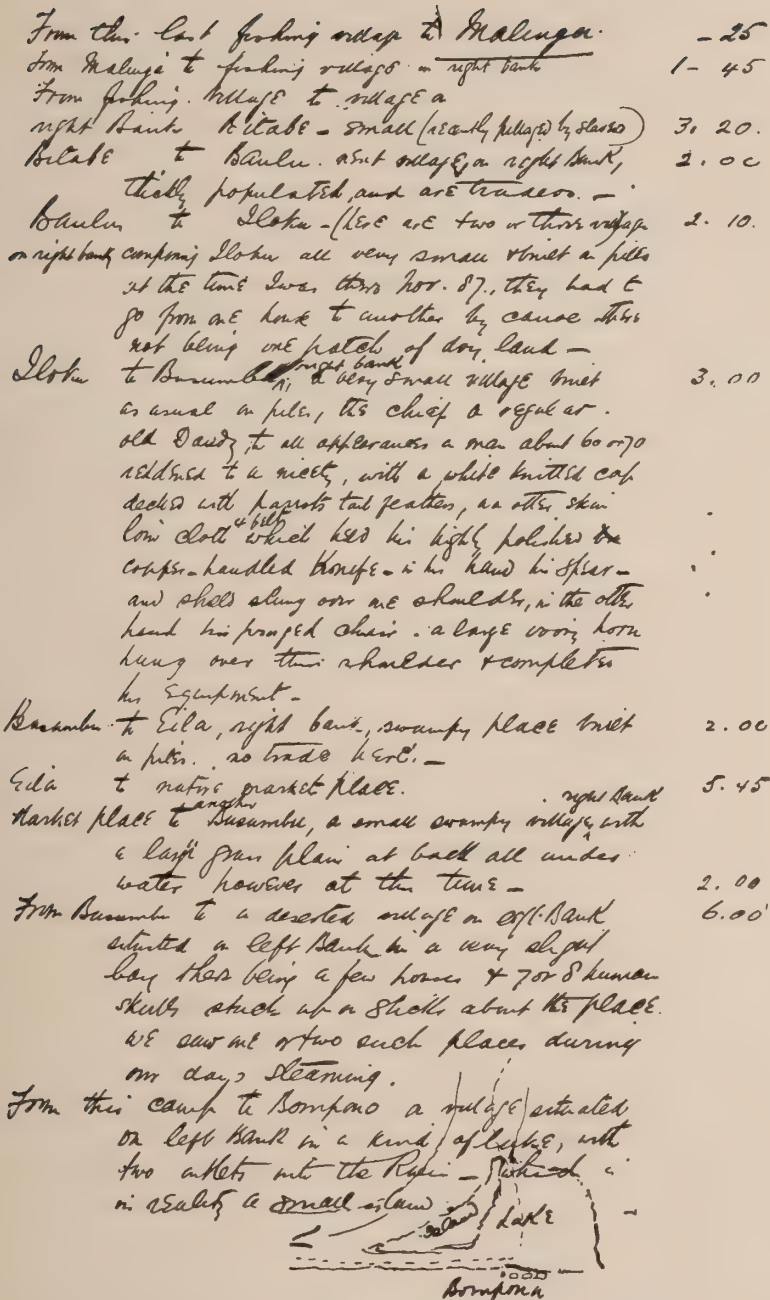 From this last fishing village to Malinga. - 25
From Malinga to fishing village on right bank 1 - 45
From fishing village to village a
right Bank Bitabe - small (recently pillaged by slaves) 3. 20.
Bitabe to Baulu. next village, on right Bank, 2. 00
thickly populated, and are traders. -
Baulu to Iloku - (here are two or three villages 2. 10.
on right bank, comprising Iloku all very small & built on piles
at the time I was there Nov. 87., they had to
go from one house to another by canoe there
not being one patch of dry land -
Iloku to Busumbu, right bank a very small village built 3. 00
as usual on piles, the chief a regular
old Dandy, to all appearances a man about 60 or 70
reddened to a nicety, with a white knitted cap
decked with parrots tail feathers, an otter skin
loin cloth & belt which held his highly polished
copper-handled Knife - in his hand his spear -
and shield slung over one shoulder, in the other
hand his pronged chair. a large ivory horn
hung over this shoulder & completes
his equipment -
Busumbu to Eila, right bank, swampy place built 2. 00
on piles. no trade here. -
Eila to native market place. 5. 45
Market place to another Busumbu, a small swampy village, right Bank with
a large grass plain at back all under
water however at this time - 2. 00
From Busumbu to a deserted village on left Bank 6. 00
situated on left Bank in a very slight
bay there being a few houses & 7 or 8 human
skulls stuck up on sticks about the place.
we saw one or two such places during
our days steaming.
From this camp to Bompono a village situated
on left Bank in a kind of lake, with
two outlets into the River - which is
in reality a small island
Island Lake
Bompona